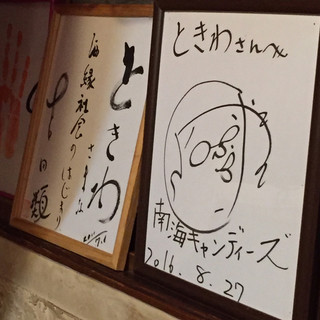 ときわ
さまな
酒縁社会のはじまり
吉田類
ときわさんへ
南海キャンディーズ
2016.8.27